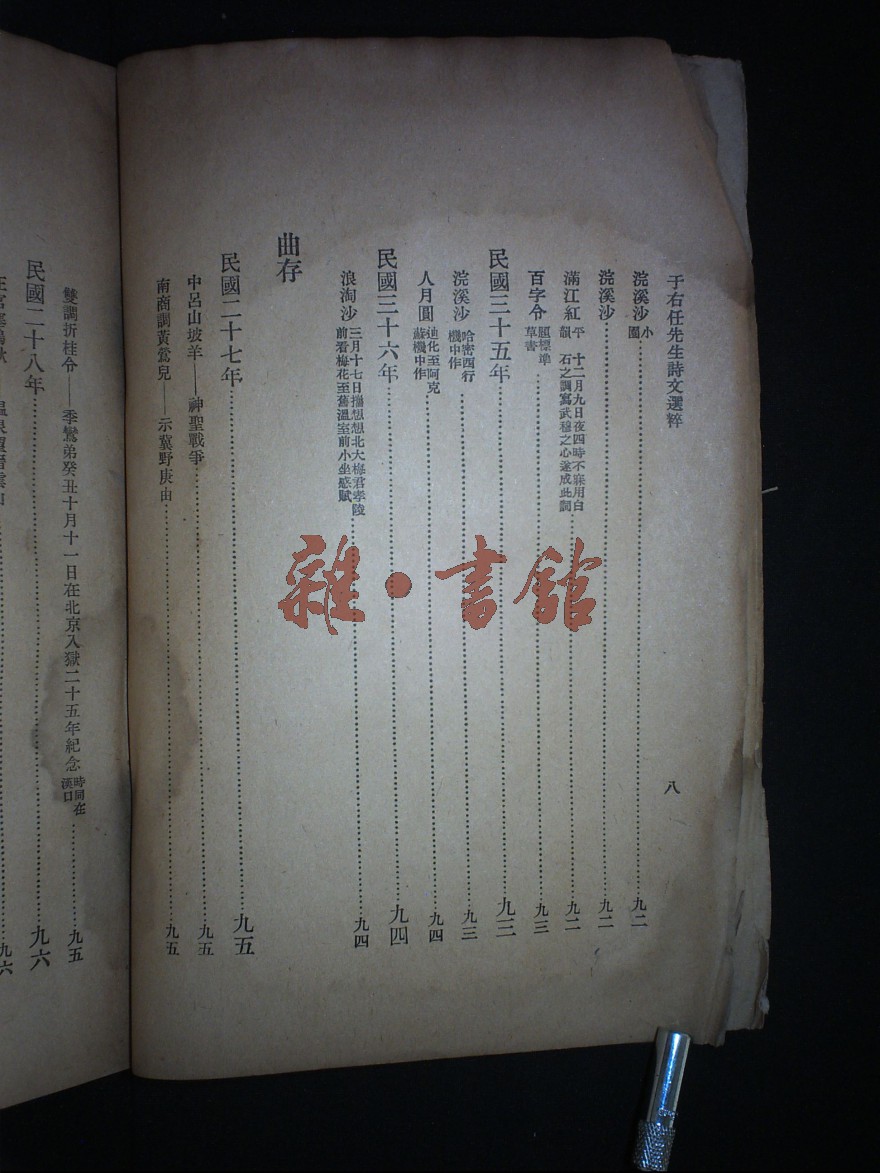 于右任先生詩文選粹
八
浣溪沙 小園 九二
浣溪沙 九二
滿江紅 平韻 十二月九日夜四時不寐用白石之調寫武穆之心遂成此詞 九二
百字令 題標準草書 九三
民國三十五年 九三
浣溪沙 哈密西行機中作 九三
人月圓 迪化至阿克蘇機中作 九四
民國三十六年 九四
浪淘沙 三月十七日攜想想北大梅君孝陵前看梅花至舊溫室前小坐感賦 九四
曲存
民國二十七年 九五
中呂山坡羊——神聖戰爭 九五
南商調黃鶯兒——示冀野庚由 九五
雙調折桂令——季鸞弟癸丑十月十一日在北京入獄二十五年紀念 時同在漢口 九五
民國二十八年 九六
九六
雜·書館